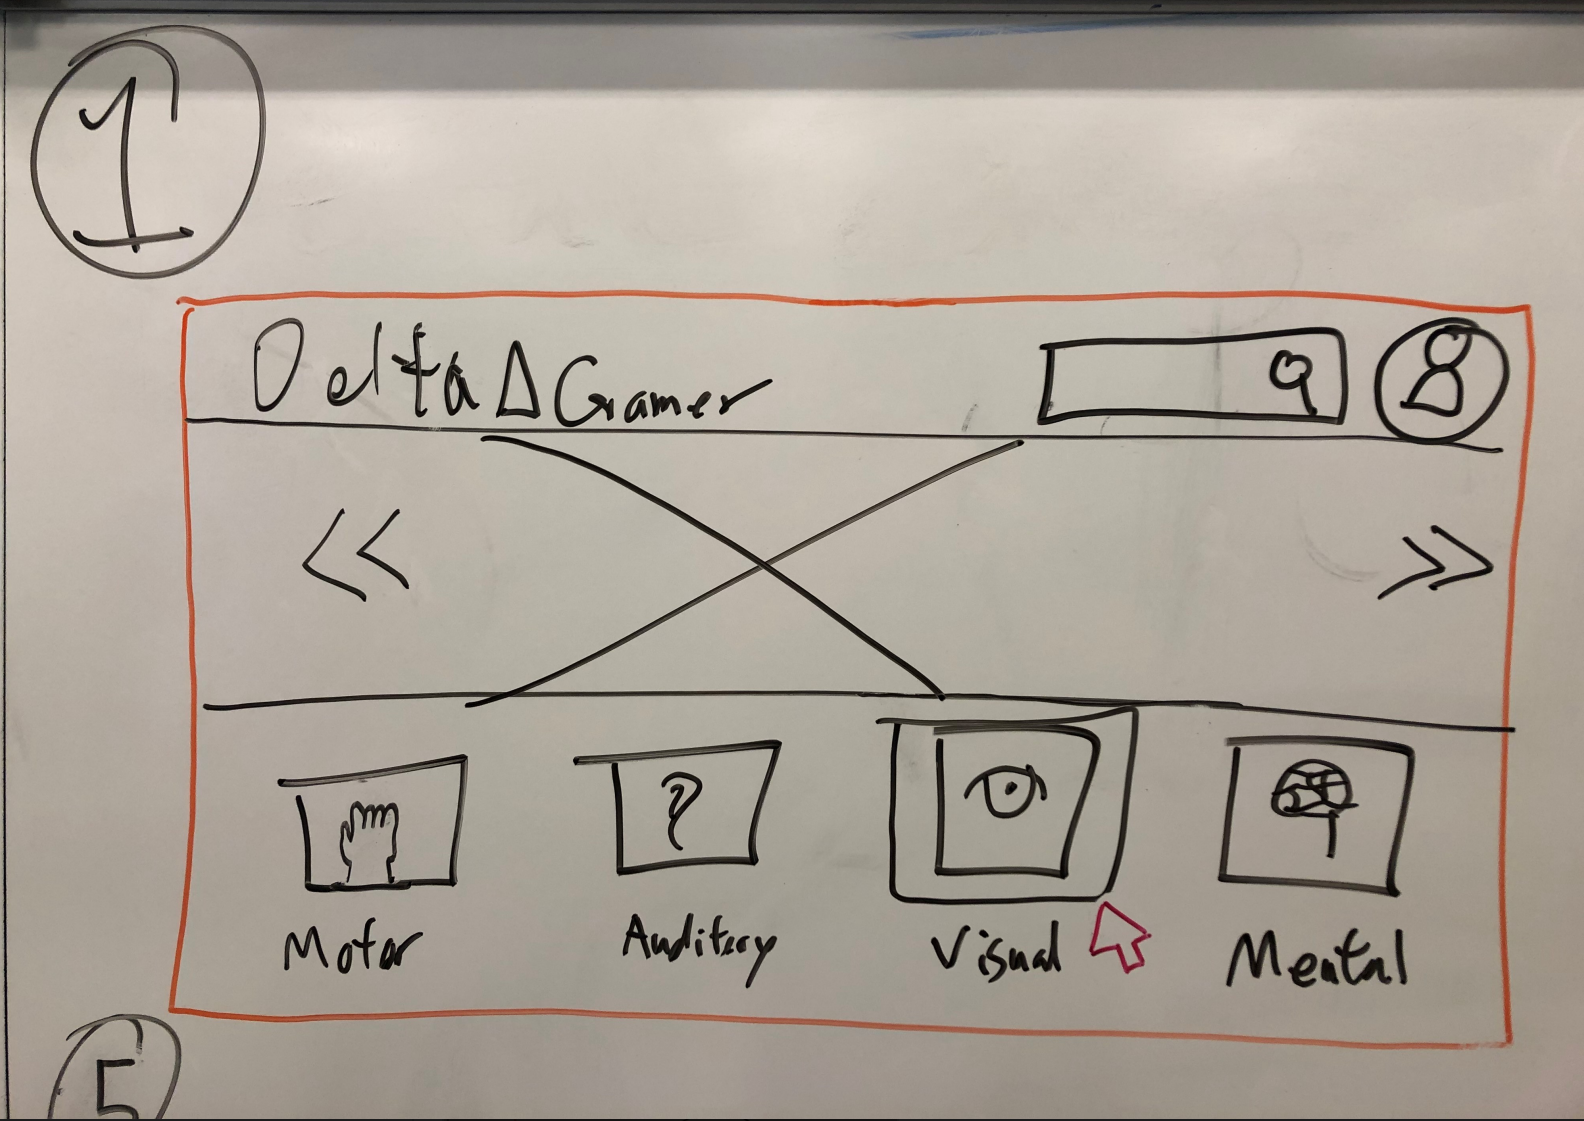 1
Delta Δ Gamer
<< >>
Motor Auditory Visual Mental
5